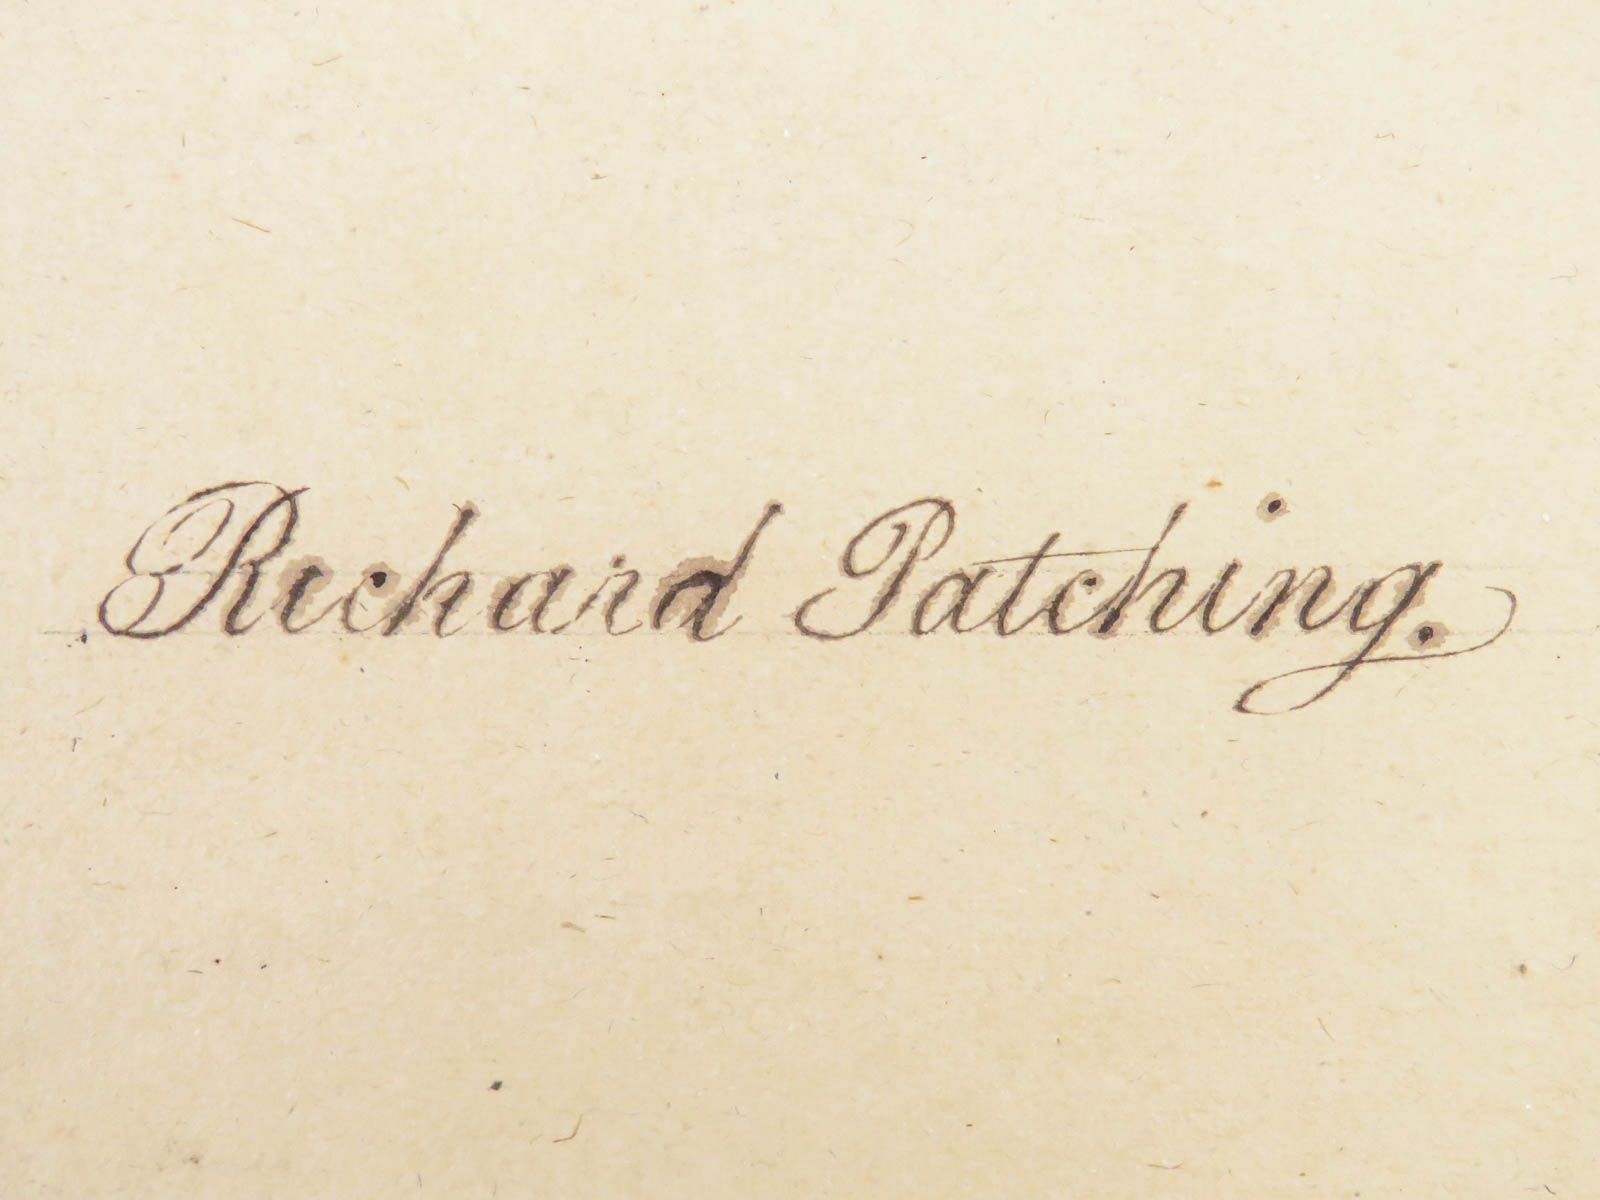 Richard Patching.